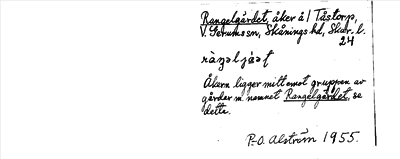 Rangelgärdet, åker å 1 Tåstorp,
V. Gerumssn, Skånings hd, Skar. l.
24
Åkern ligger mitt emot gruppen av
gårdar m. namnet Rangelgärdet, se
detta.
P.-O. Alström 1955.